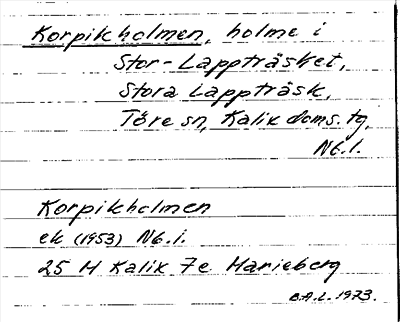 Korpikholmen, holme i
Stor-Lappträsket,
Stora Lappträsk,
Töre sn, Kalix doms. tg,
Nb.l.
Korpikholmen
ek (1953) Nb.l.
25 M Kalix 7e Marieberg
B.A.L. 1973.